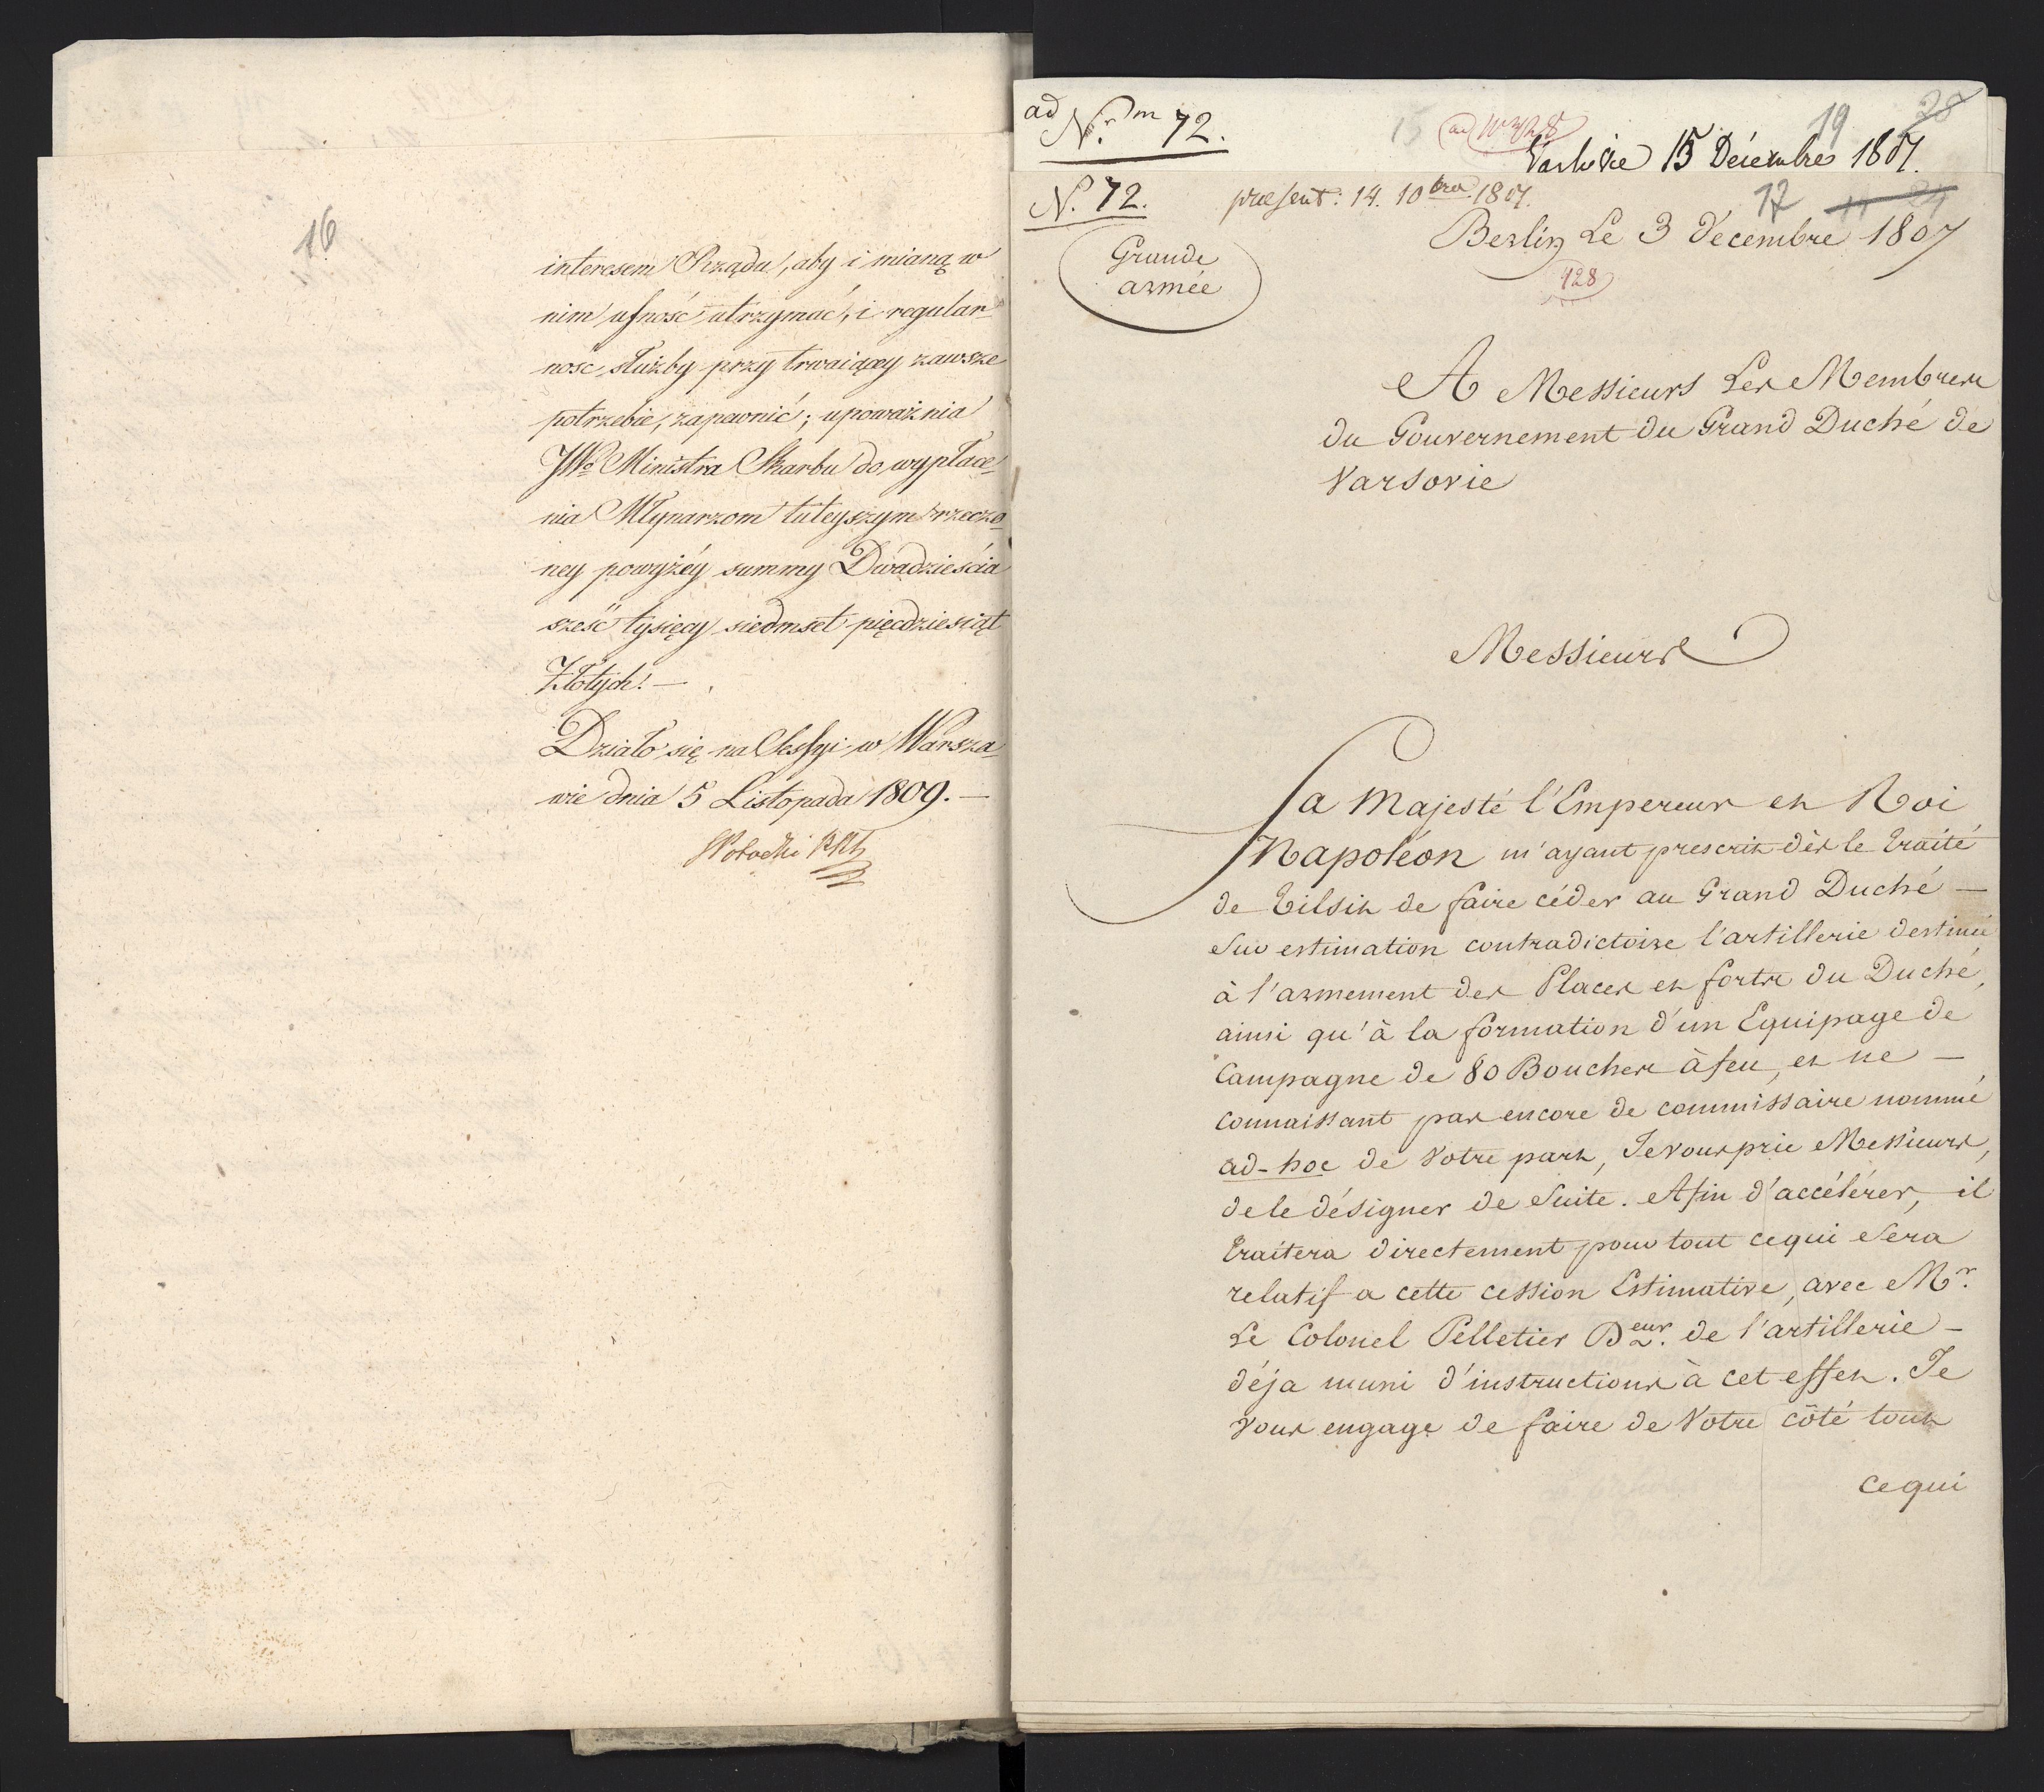 16
interesem Rządu, aby i mianą w
nim ufność utrzymać, i regular-
ność służby przy trwaiącey zawsze
potrzebie, zapewnić; upoważnia
JWo Ministra Skarbu do wypłace-
nia Młynarzom tuteyszym rzeczo-
ney powyżéy summy Dwadzieścia
sześć tysięcy siedmset pięćdziesiąt
Złotych! —
Działo się na Sessyi w Warsza-
wie dnia 5 Listopada 1809. —
ad Nr.m 72.
15
19
28
Varsovie 15 Décembre 1807.
N. 72.
præsent: 14. 10bra 1807.
17
Grande
armée
Berlin Le 3 Décembre 1807
928
A Messieurs Les Membres
du Gouvernement du Grand Duché de
Varsovie
Messieurs
Sa Majesté l'Empereur et Roi
Napoléon m'ayant prescrit dès le traité
de Tilsit de faire céder au Grand Duché —
Sur estimation contradictoire l'artillerie destinée
à l'armement des Places et forts du Duché,
ainsi qu'à la formation d'un Equipage de
Campagne de 80 Bouches à feu, et ne —
connaissant pas encore de commissaire nommé
ad-hoc de Votre part, Je vous prie Messieurs,
de le désigner de Suite. Afin d'accélérer, il
traitera directement pour tout ce qui Sera
relatif a cette cession Estimative, avec Mr.
Le Colonel Pelletier Deur. de l'artillerie —
déja muni d'instructions à cet effet. Je
vous engage de faire de Votre côté tout
ce qui